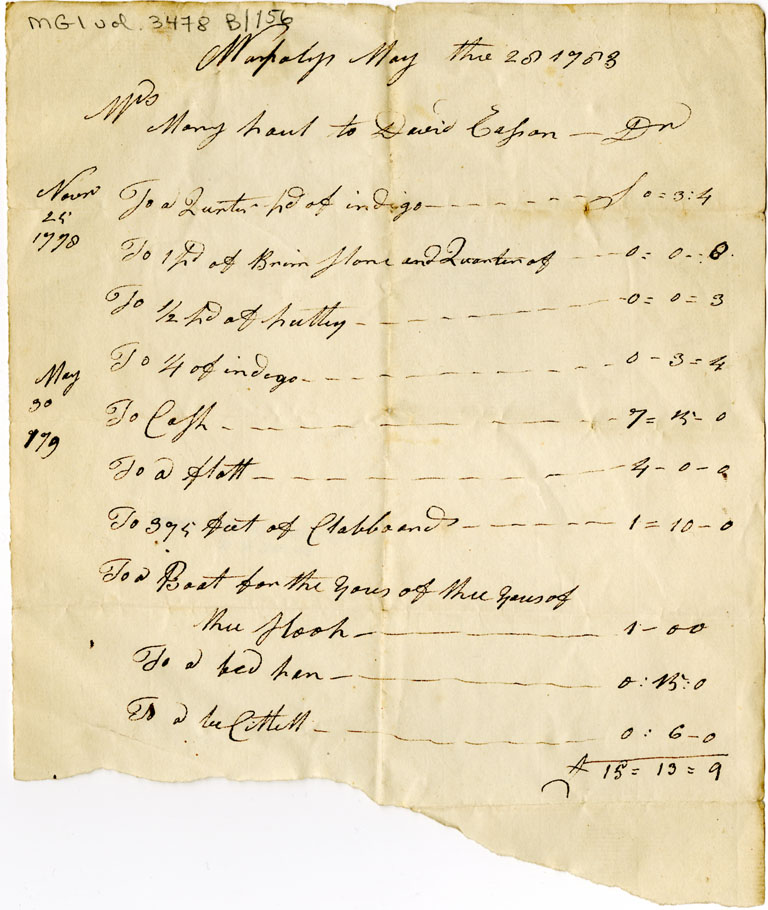 MG1 vol. 3478 B/156
Annapolys May the 28 1783
Mrs
Mary haul to David Easson — Dr
Novr 25 1778
To a Quarter lbd of indigo - - - - - - 0 = 3 : 4
To 1 lbd of Brim stone and Quarter of - - 0 = 0 - : 8
To 1/2 lbd of puttey - - - - - - - 0 = 0 = 3
To 1/4 of indego - - - - - - - - - 0 - 3 = 4
May 30 179
To Cash - - - - - - - - - - - 7 = 15 - 0
To a flatt - - - - - - - - - - 4 - 0 - 0
To 375 feet of Clabboards - - - - - - 1 = 10 - 0
To a Boat for the yous of thee yous of
thee sloop ———— 1 - 00
To a bed pan ———— 0 : 15 : 0
To a tee Cittell ———— 0 : 6 - 0
15 = 13 = 9